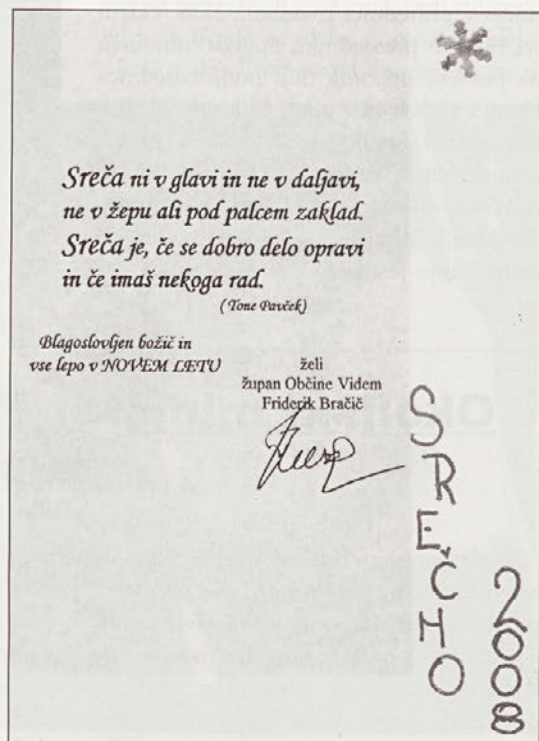 Sreča ni v glavi in ne v daljavi,
ne v žepu ali pod palcem zaklad.
Sreča je, če se dobro delo opravi
in če imaš nekoga rad.
(Tone Pavček)
Blagoslovljen božič in
vse lepo v NOVEM LETU
želi
župan Občine Videm
Friderik Bračič
SREČNO
2008